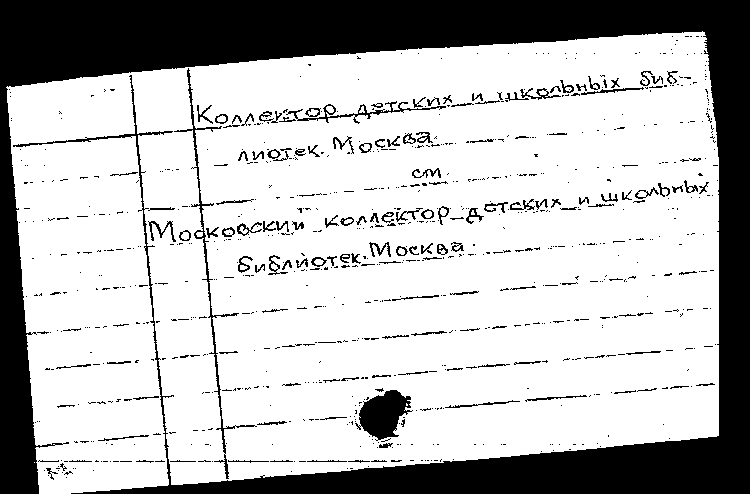 Коллектор детских и школьных биб-
лиотек. Москва.
см
Московский коллектор детских и школьных
библиотек. Москва.
М